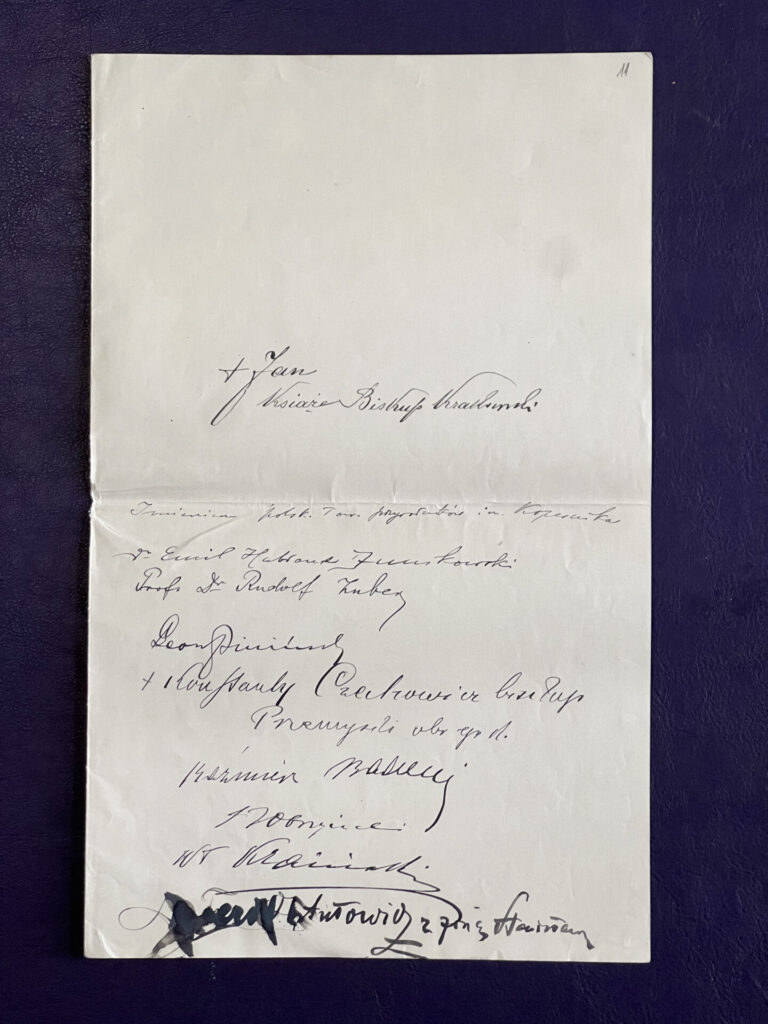 11
+ Jan
Książe Biskup Krakowski
Imieniem polsk. Tow. przyrodników im. Kopernika
Dr Emil Habdank Dunikowski
Profs Dr Rudolf Zuber
Leon Piniński
+ Konstanty Czechowicz biskup
Przemyski obr. gr.
Kaźmierz Badeni
Bobrzyński
Wł
z żoną